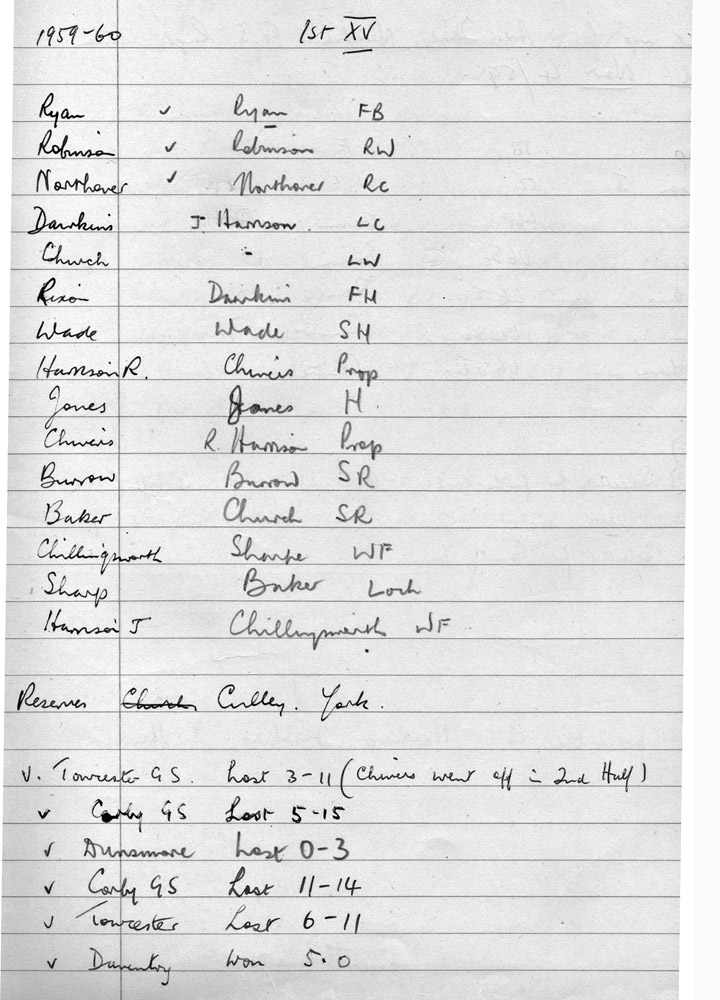 1959-60 1st XV
Ryan ✓ Ryan FB
Robinson ✓ Robinson RW
Northover ✓ Northover RC
Dawkins J Harrison. LC
Church - LW
Rixon Dawkins FH
Wade Wade SH
Harrison R. Chivers Prop
Jones Jones H.
Chivers R. Harrison Prop
Burrow Burrow SR
Baker Church SR
Chillingsworth Sharpe WF
Sharp Baker Lock
Harrison J Chillingsworth WF
Reserves Church Culley. York.
V. Towcester GS. Lost 3-11 (Chivers went off in 2nd Half)
v Corby GS Lost 5-15
v Dunsmore Lost 0-3
v Corby GS Lost 11-14
v Towcester Lost 6-11
v Daventry Won 5.0